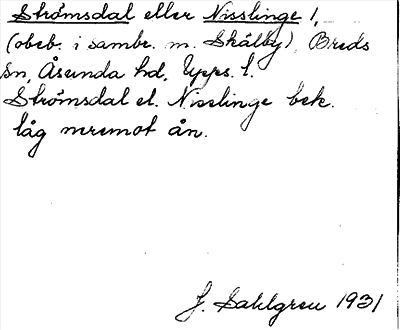 Strömsdal eller Nisslinge l,
(obeb. i sambr. m. Skälby), Breds
sn, Åsunda hd, Upps. l.
Strömsdal el. Nisslinge bek.
låg närmot ån.
J. Sahlgren 1931